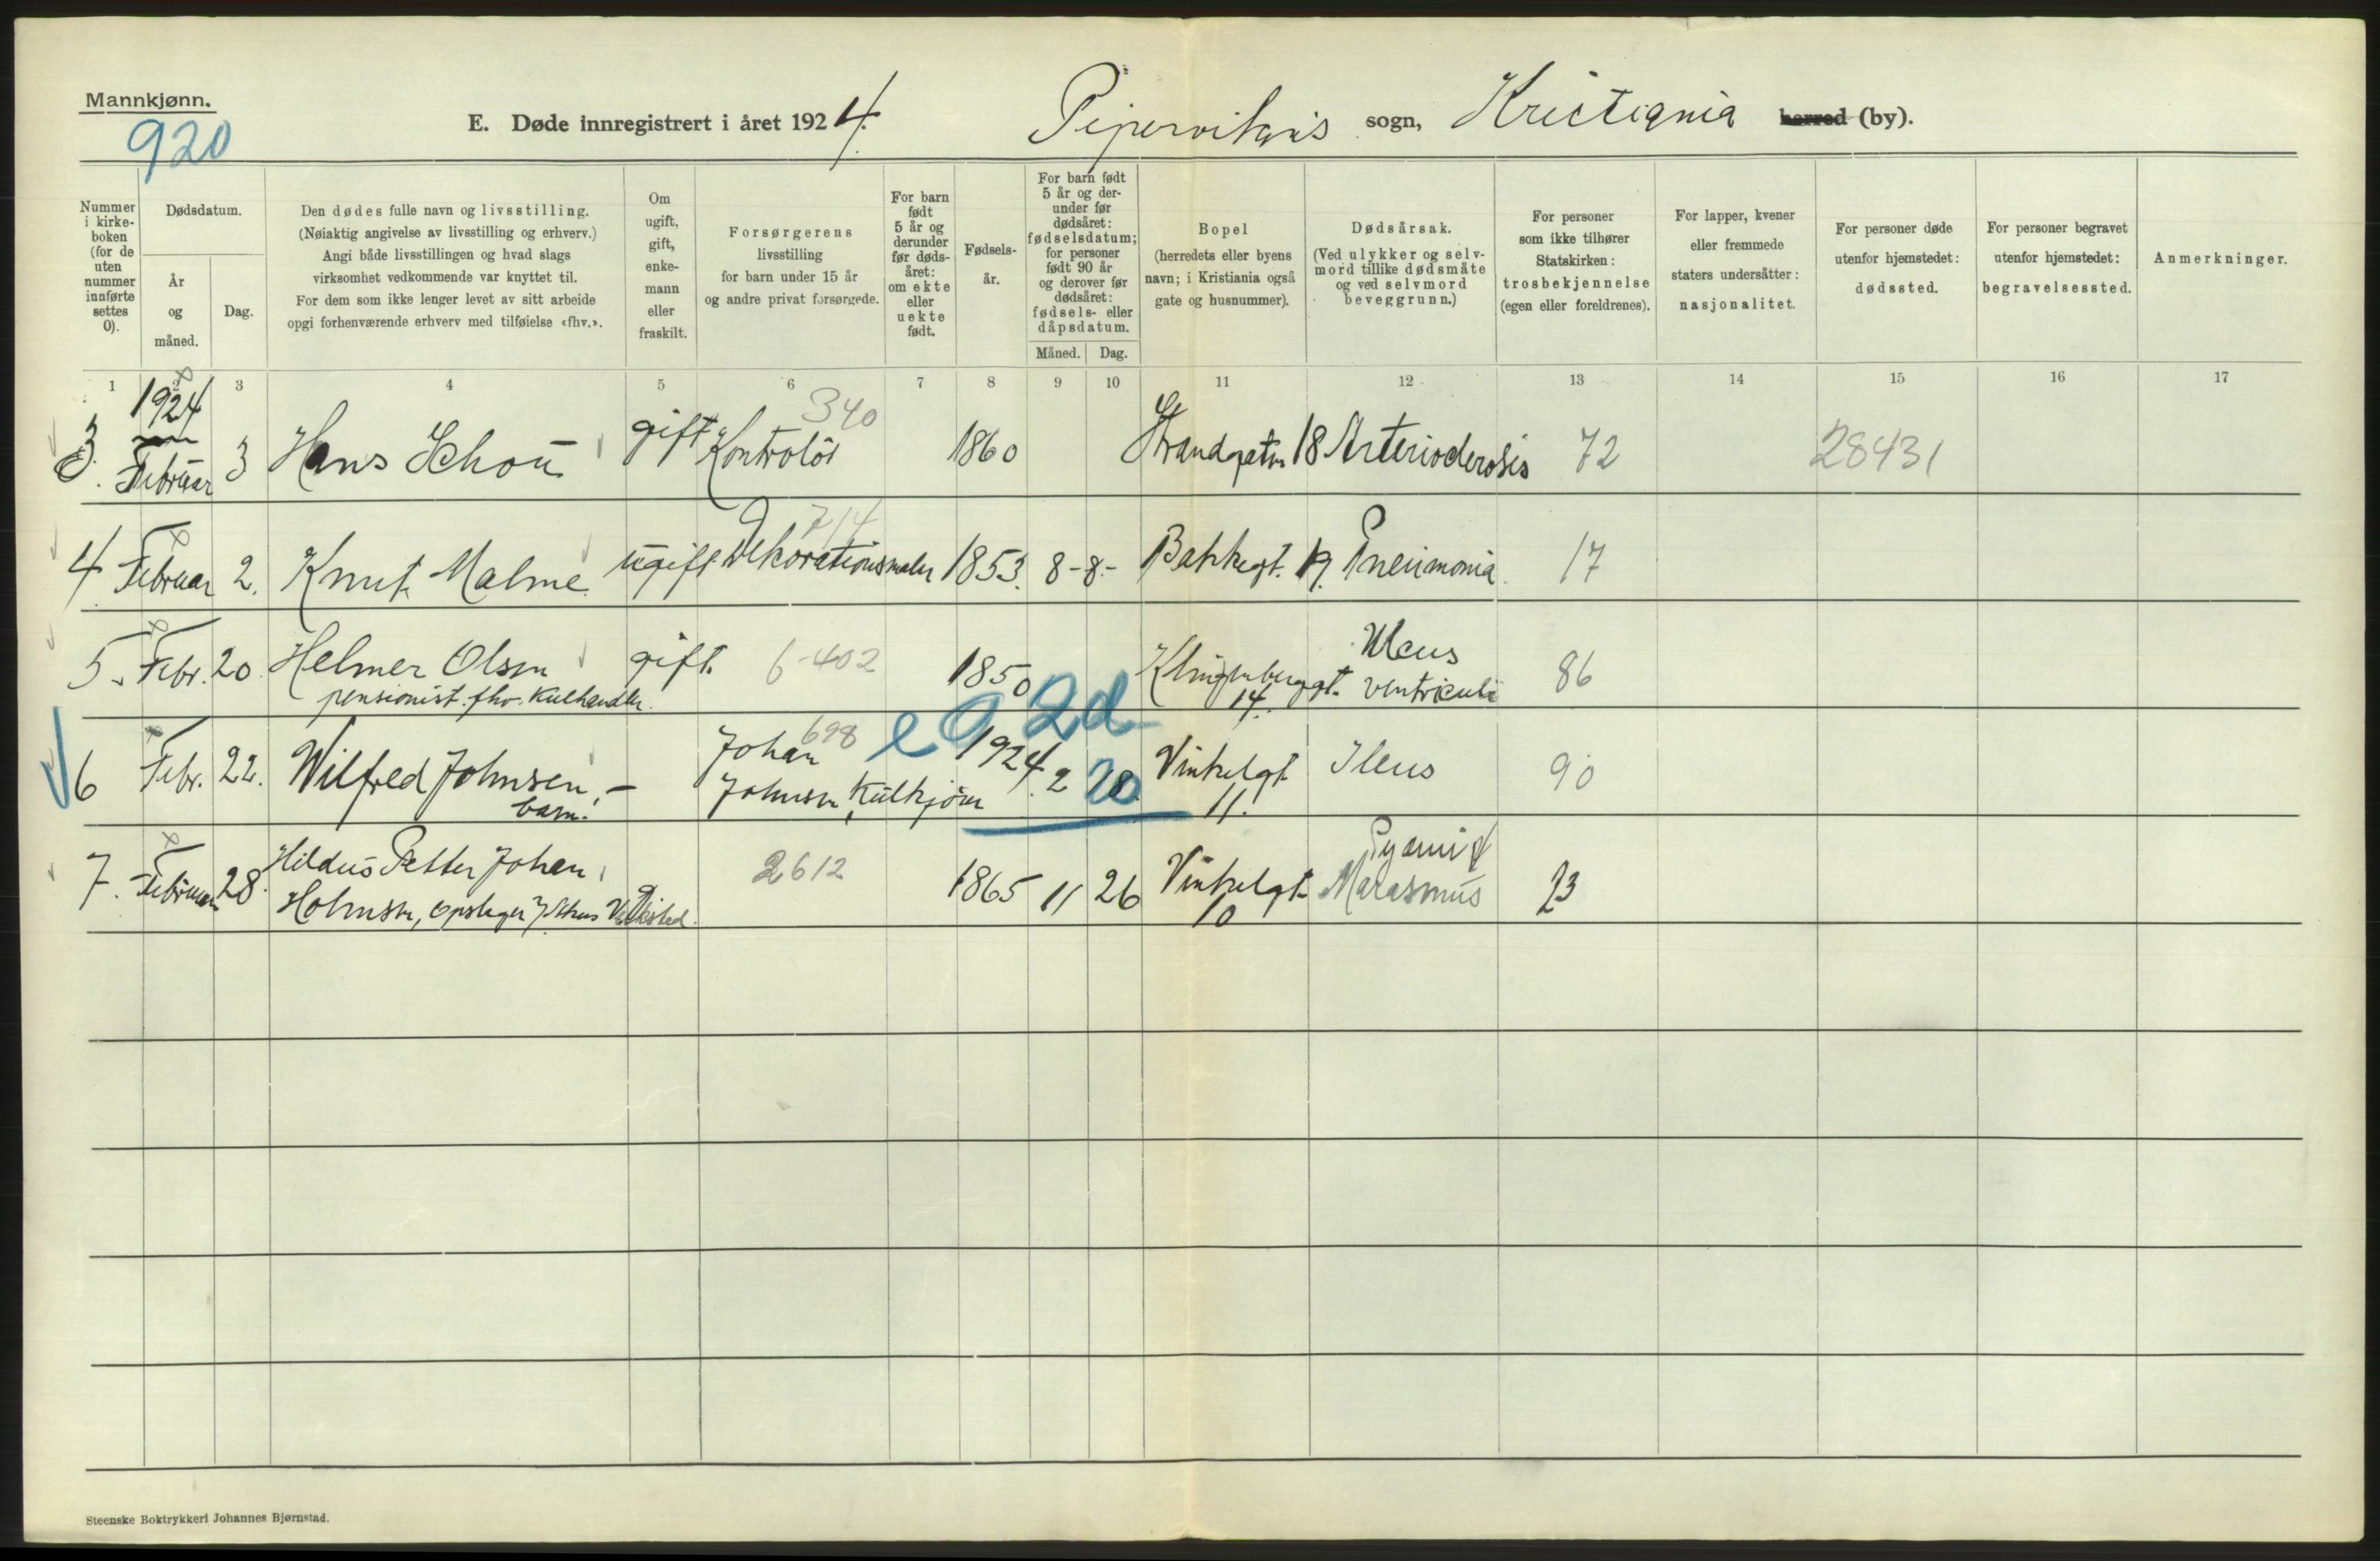 Mannkjønn.
920
E. Døde innregistrert i året 1924. Pipervikens sogn, Kristiania herred (by).
Nummer i kirke-boken (for de uten nummer innførte settes 0).
Dødsdatum.
År og måned.
Dag.
Den dødes fulle navn og livsstilling.
(Nøiaktig angivelse av livsstilling og erhverv.)
Angi både livsstillingen og hvad slags
virksomhet vedkommende var knyttet til.
For dem som ikke lenger levet av sitt arbeide
opgi forhenværende erhverv med tilføielse «fhv.».
Om ugift, gift, enke-mann eller fraskilt.
Forsørgerens
livsstilling
for barn under 15 år
og andre privat forsørgede.
For barn født 5 år og derunder før døds-året: om ekte eller uekte født.
Fødsels-år.
For barn født 5 år og der-under før dødsåret: fødselsdatum; for personer født 90 år og derover før dødsåret: fødsels- eller dåpsdatum.
Måned. Dag.
Bopel
(herredets eller byens
navn; i Kristiania også
gate og husnummer).
Dødsårsak.
(Ved ulykker og selv-
mord tillike dødsmåte
og ved selvmord
beveggrunn.)
For personer
som ikke tilhører
Statskirken:
trosbekjennelse
(egen eller foreldrenes).
For lapper, kvener
eller fremmede
staters undersåtter:
nasjonalitet.
For personer døde
utenfor hjemstedet:
dødssted.
For personer begravet
utenfor hjemstedet:
begravelsessted.
Anmerkninger.
1 2 3 4 5 6 7 8 9 10 11 12 13 14 15 16 17
1924 340
3. Februar 3 Hans Schou gift Kontrolør 1860 Strandgaten 18 Arteriosclerosis 72 28431
714
4. Februar 2. Knut Malme ugift Dekorationsmaler 1853. 8-8.- Bakkegt. 19. Pneumonia 17
5. Febr. 20. Helmer Olsen gift 6-402 1850 Klingenberggt. 14. Ulcus ventriculi 86
pensionist. fhv. Kulhandler.
e 9 2d
698
6 Febr. 22. Wilfred Johnsen, barn. - Johan Johnsen, Kulkjører 1924. 2 20 Vinkelgt 11. Ileus 90
7. Februar 28. Hildus Petter Johan 2612 1865 11 26 Vinkelgt. 10 Pyami Marasmus 23
Holmsen, Opsteger
Steenske Boktrykkeri Johannes Bjørnstad.